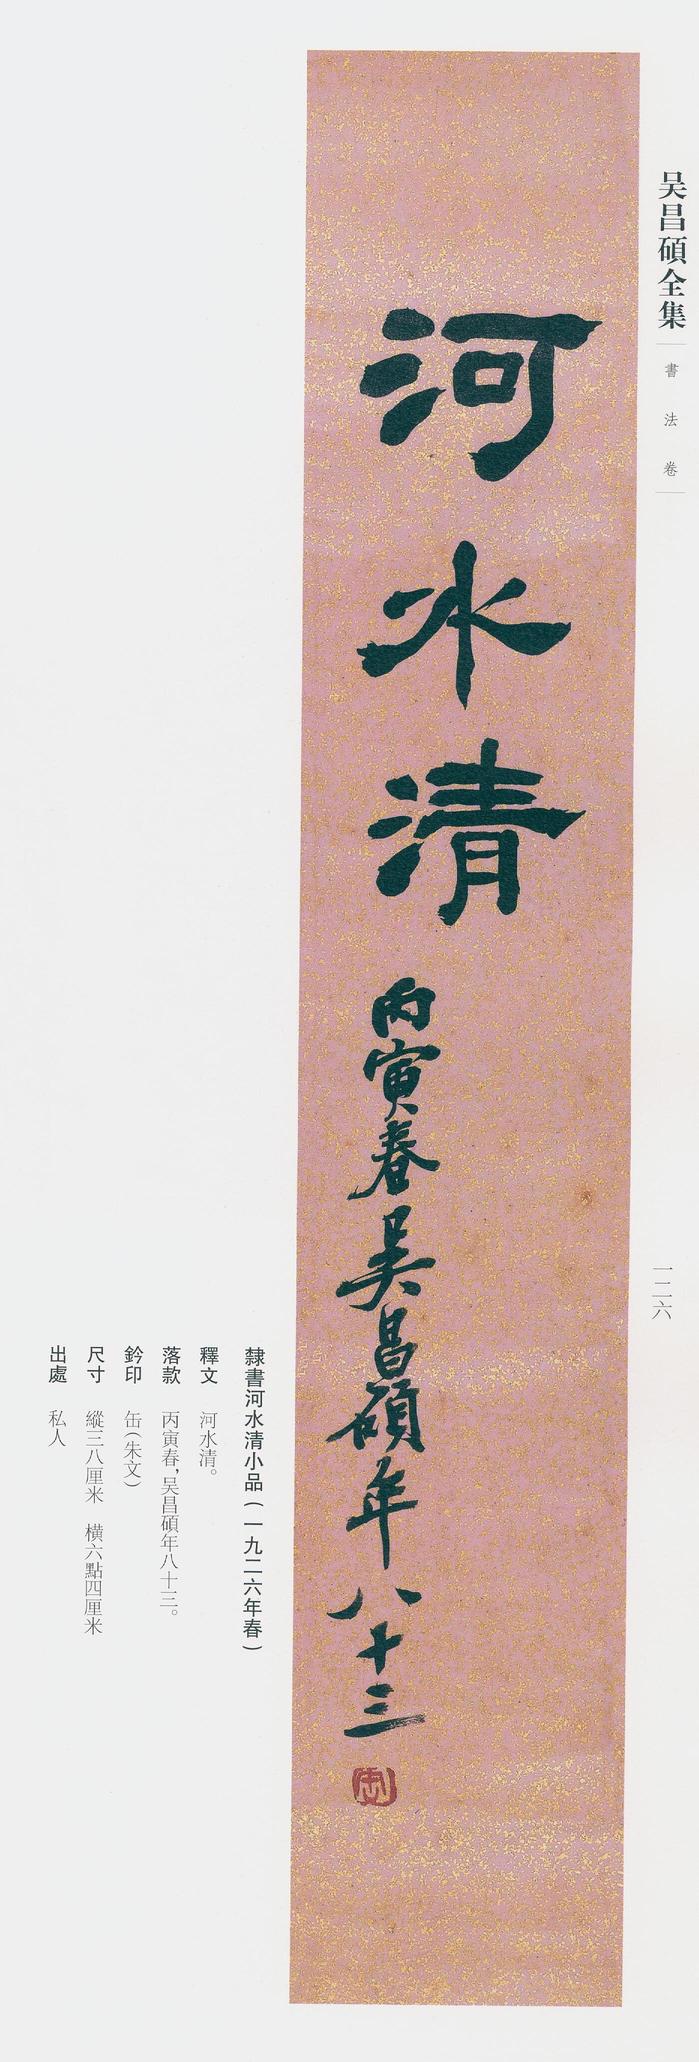 吴昌碩全集
書法卷
一二六
河水清
丙寅春吴昌碩年八十三
缶
隸書河水清小品（一九二六年春）
釋文 河水清。
落款 丙寅春，吴昌碩年八十三。
鈐印 缶（朱文）
尺寸 縱三八厘米 橫六點四厘米
出處 私人